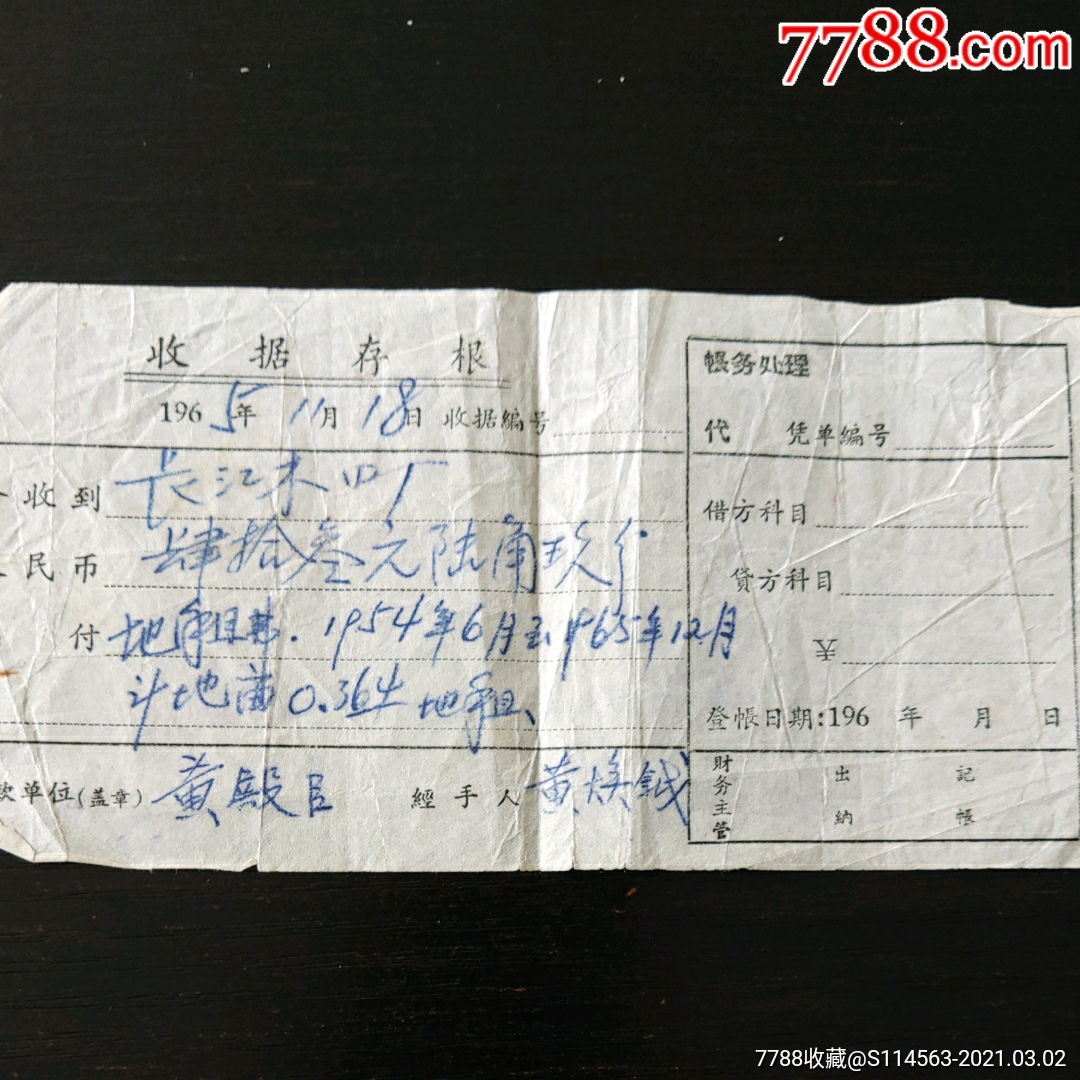 7788.com
收据存根
1965年11月18日 收据编号
收到 长江木口厂
民币 肆拾叁元陆角玖分
付 地租费.1954年6月至1965年12月
计地亩0.364 地租、
款单位(盖章) 黄殿臣 經手人 黄焕钺
帳务处理
代 凭单编号
借方科目
贷方科目
登帳日期:196 年 月 日
财务主管 出纳 記帳
7788收藏@S114563-2021.03.02